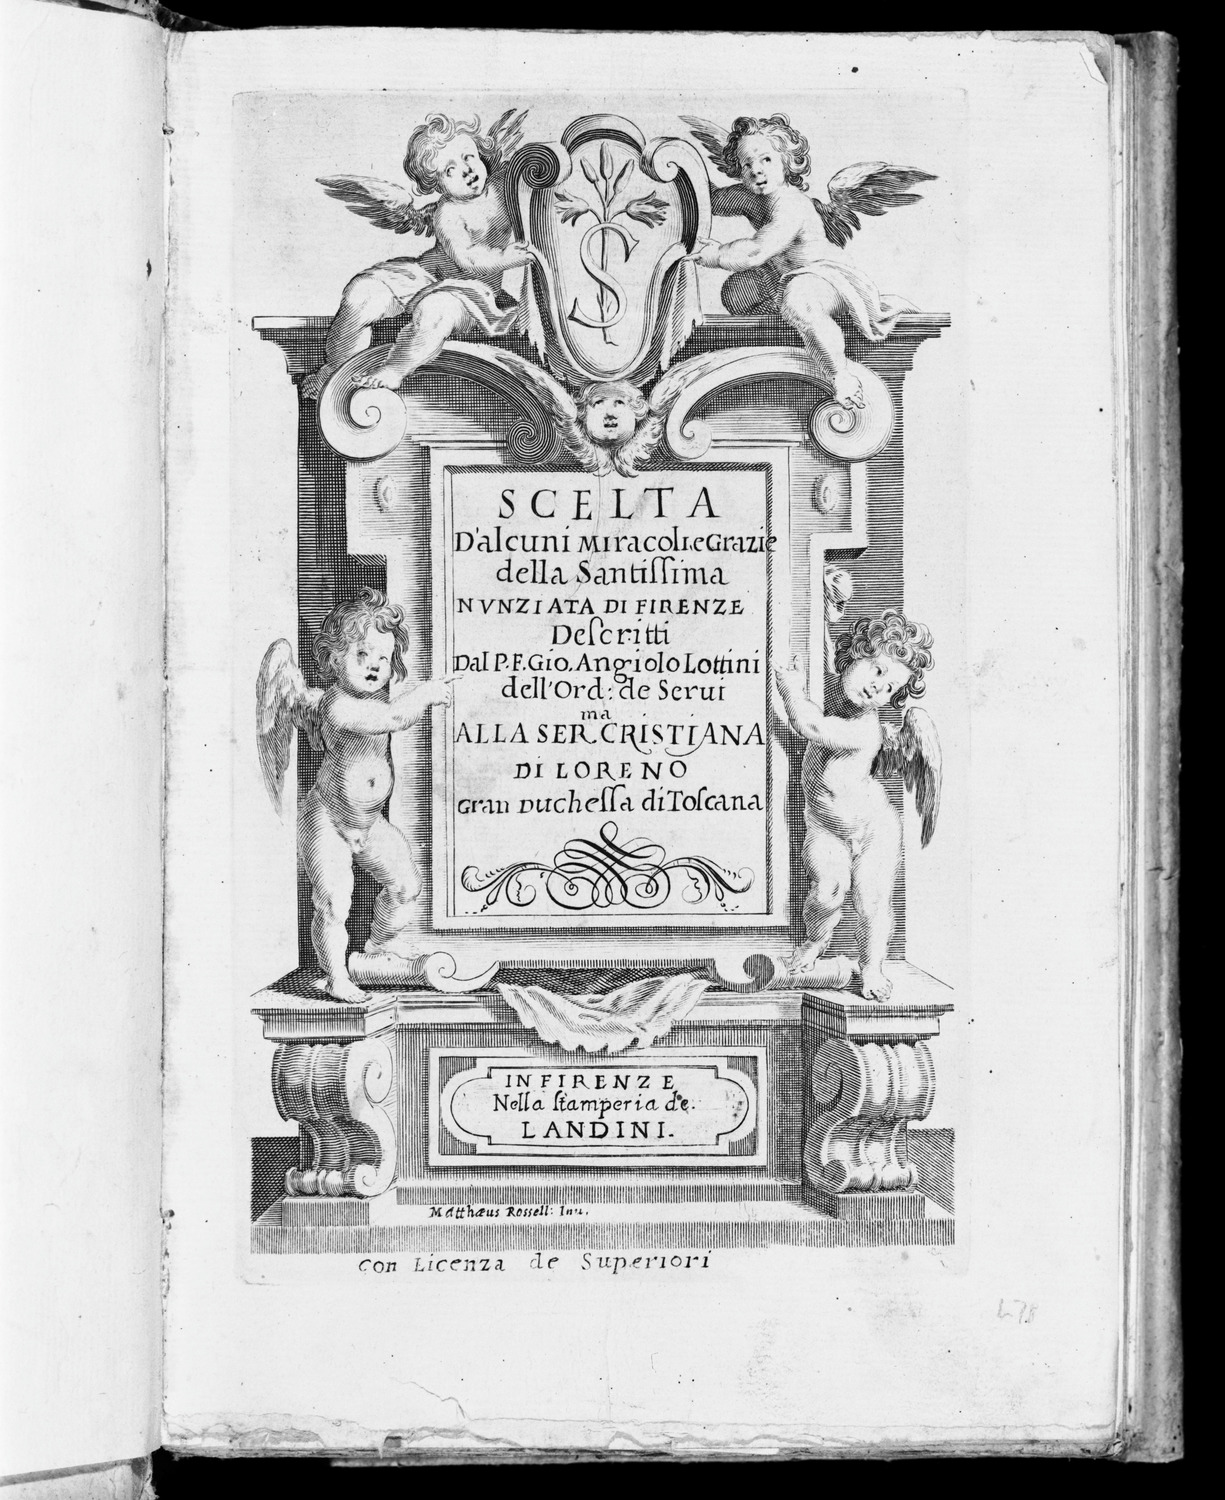 S
SCELTA
D'alcuni Miracoli, e Grazie
della Santiſſima
NVNZIATA DI FIRENZE
Deſcritti
Dal P. F. Gio. Angiolo Lottini
dell'Ord: de Serui
ALLA SER.ma CRISTIANA
DI LORENO
Gran Ducheſſa di Toſcana
IN FIRENZE
Nella ſtamperia de.
LANDINI.
Matthæus Rossell: Inu.
Con Licenza de Superiori